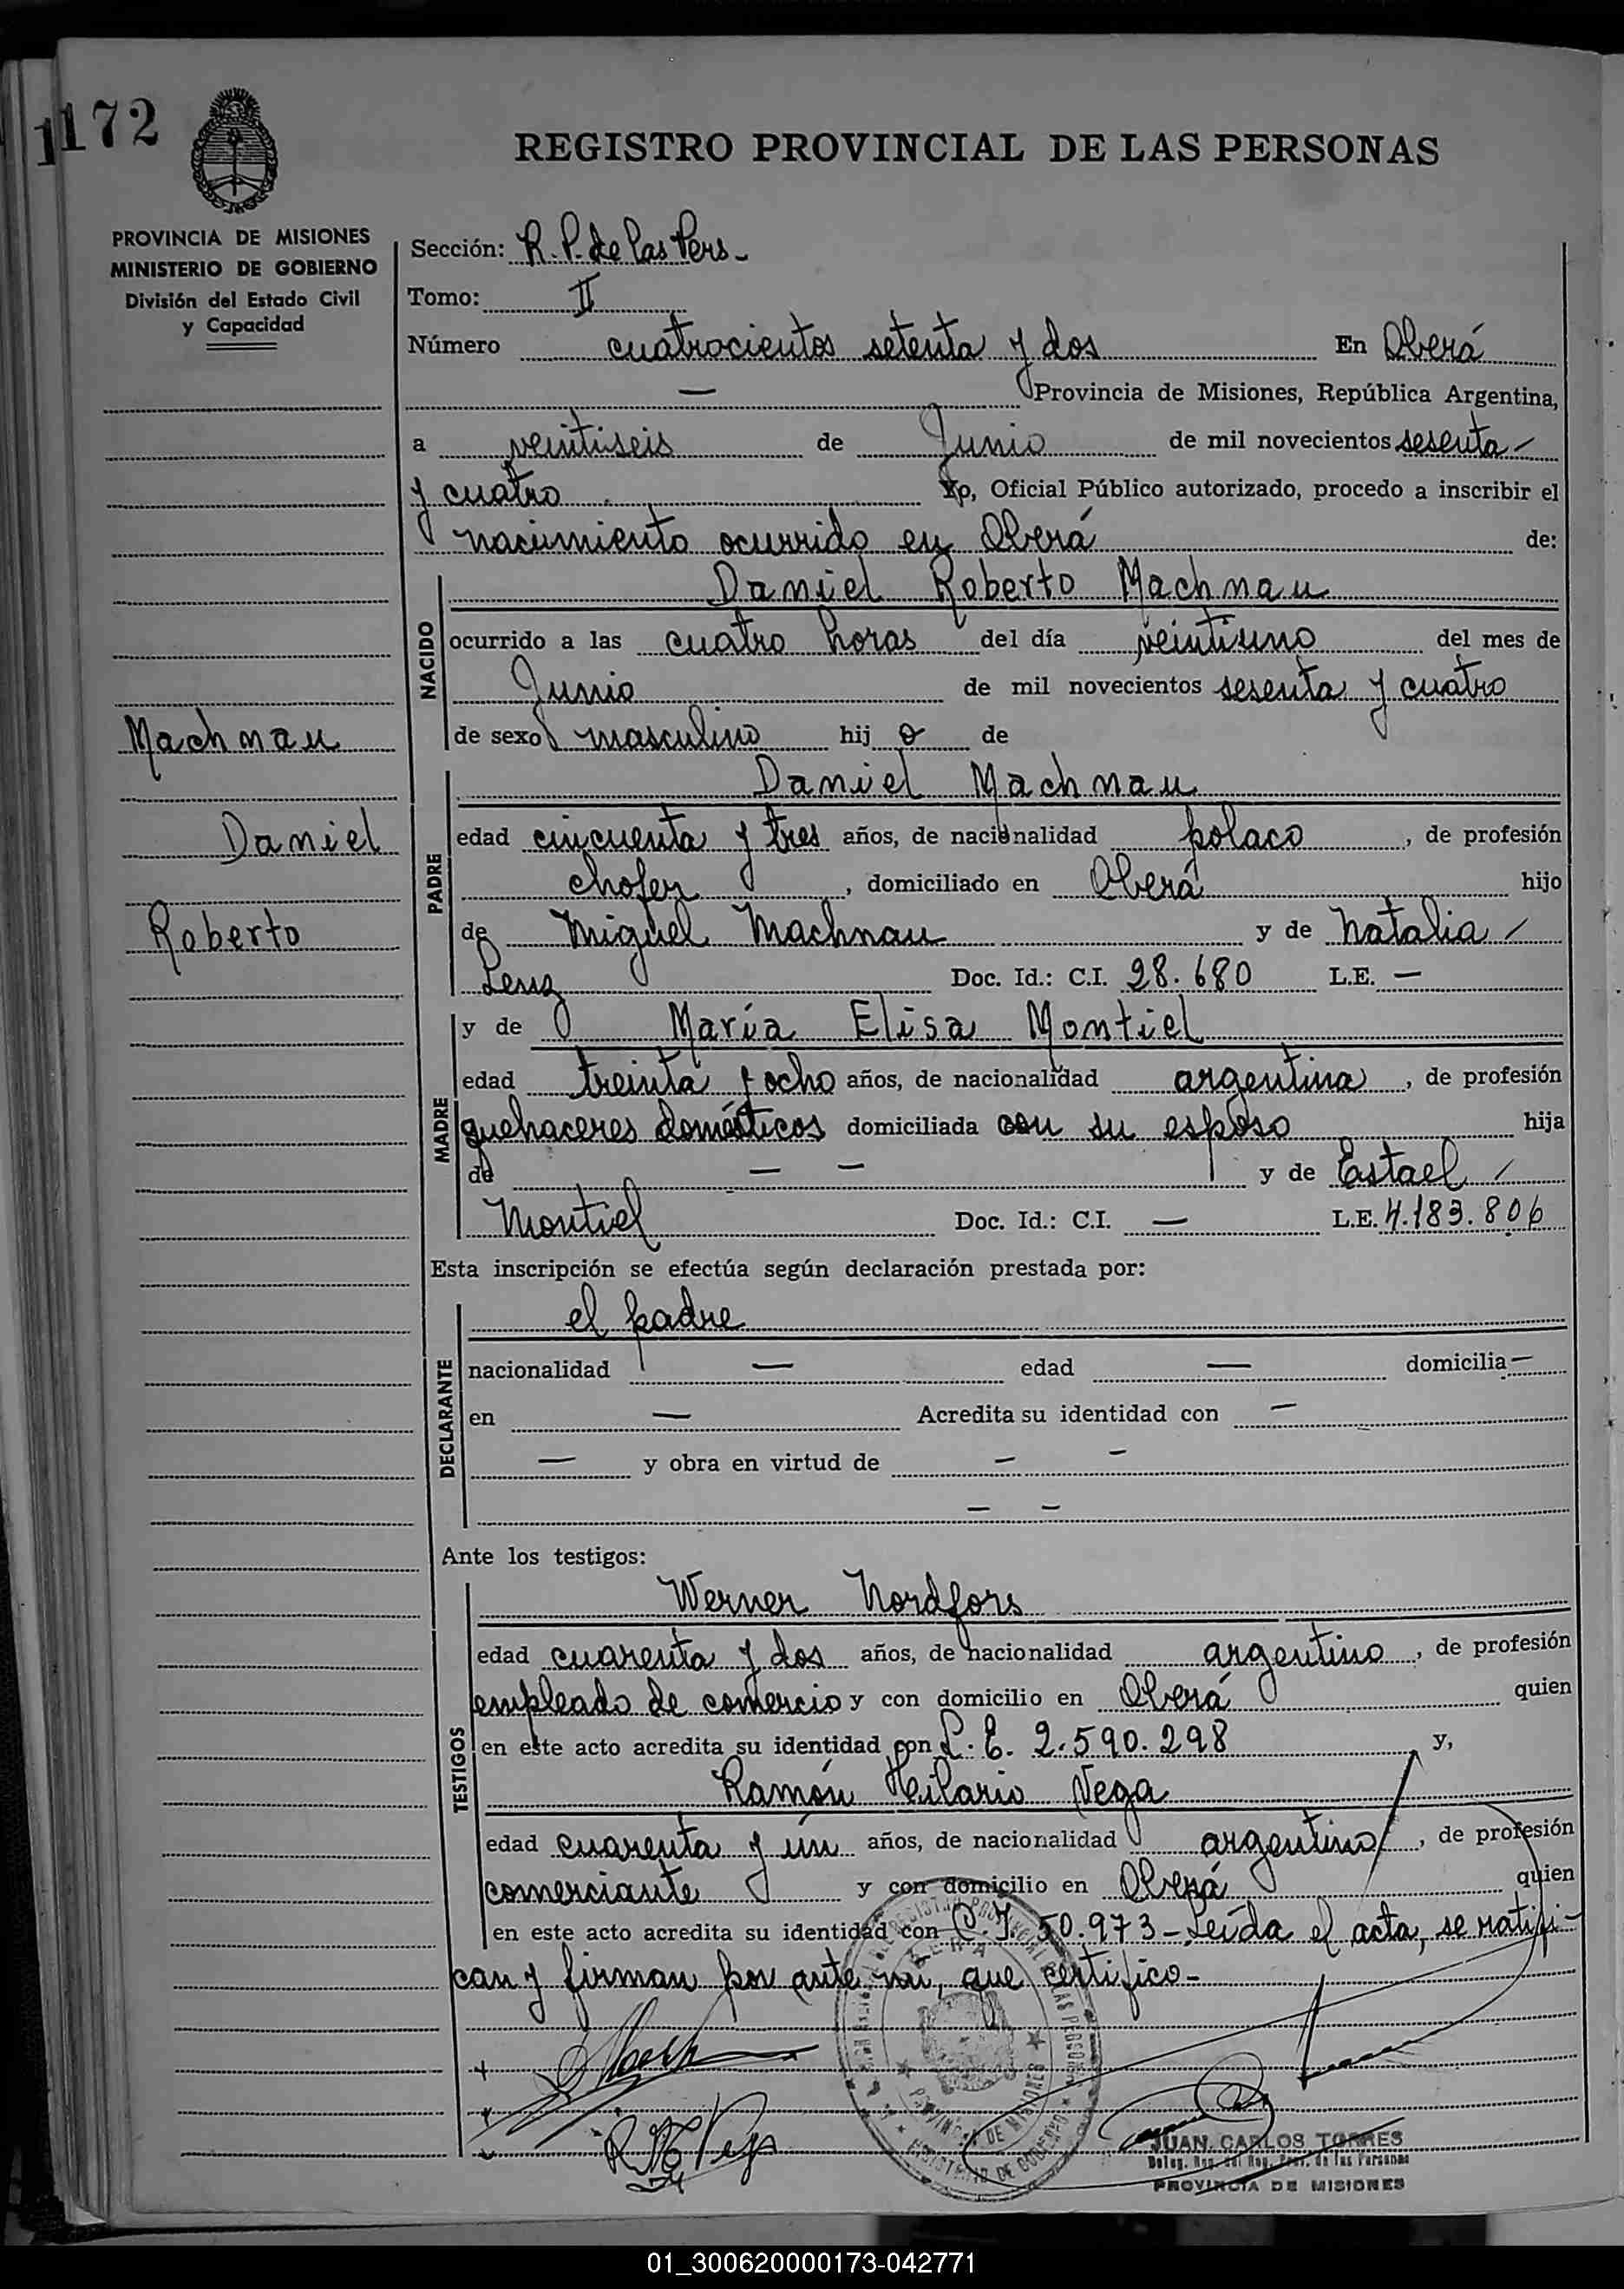 1172
REGISTRO PROVINCIAL DE LAS PERSONAS
PROVINCIA DE MISIONES
MINISTERIO DE GOBIERNO
División del Estado Civil
y Capacidad
Sección: R. P. de las Pers.-
Tomo: II
Número cuatrocientos setenta y dos En Oberá
— Provincia de Misiones, República Argentina,
a veintiseis de Junio de mil novecientos sesenta
y cuatro Yo, Oficial Público autorizado, procedo a inscribir el
nacimiento ocurrido en Oberá de:
NACIDO
Daniel Roberto Machnau
ocurrido a las cuatro horas del día veintiuno del mes de
Junio de mil novecientos sesenta y cuatro
de sexo masculino hij o de
Machnau
Daniel
Roberto
PADRE
Daniel Machnau
edad cincuenta y tres años, de nacionalidad polaco, de profesión
chofer, domiciliado en Oberá hijo
de Miguel Machnau y de Natalia
Lenz Doc. Id.: C.I. 28.680 L.E. —
MADRE
y de María Elisa Montiel
edad treinta y ocho años, de nacionalidad argentina, de profesión
quehaceres domésticos domiciliada con su esposo hija
de — — y de Estael
Montiel Doc. Id.: C.I. — L.E. 4.183.806
Esta inscripción se efectúa según declaración prestada por:
DECLARANTE
el padre
nacionalidad — edad — domicilia —
en — Acredita su identidad con —
— y obra en virtud de — —
— —
Ante los testigos:
TESTIGOS
Werner Nordfors
edad cuarenta y dos años, de nacionalidad argentino, de profesión
empleado de comercio y con domicilio en Oberá quien
en este acto acredita su identidad con L. E. 2.590.298 y,
Ramón Hilario Vega
edad cuarenta y un años, de nacionalidad argentino, de profesión
comerciante y con domicilio en Oberá quien
en este acto acredita su identidad con C. I. 50.973 - Leída el acta, se ratifi-
can y firman por ante mi, que certifico-
JUAN CARLOS TORRES
PROVINCIA DE MISIONES
01_300620000173-042771